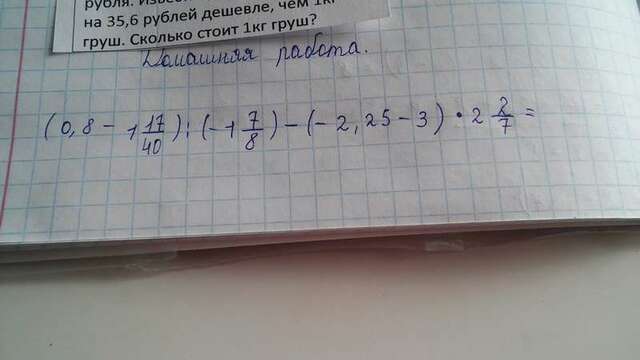 рубля.
на 35,6 рублей дешевле, чем 1кг
груш. Сколько стоит 1кг груш?
Домашняя работа.
(0,8 - 1 17/40) : (-1 7/8) - (-2,25 - 3) · 2 2/7 =